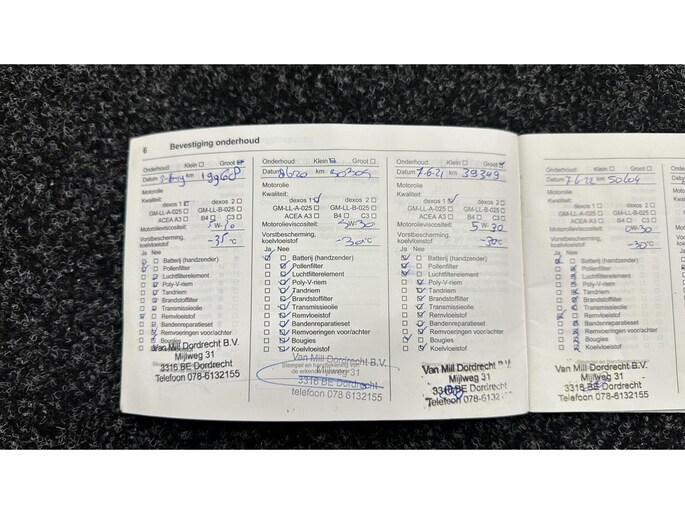 6 Bevestiging onderhoud
Onderhoud: Klein Groot
Datum km
Motorolie
Kwaliteit:
dexos 1 dexos 2
GM-LL-A-025 GM-LL-B-025
ACEA A3 B4 C3
Motorolieviscositeit:
Vorstbescherming,
koelvloeistof °C
Ja Nee
Batterij (handzender)
Pollenfilter
Luchtfilterelement
Poly-V-riem
Tandriem
Brandstoffilter
Transmissieolie
Remvloeistof
Bandenreparatieset
Remvoeringen voor/achter
Bougies
Koelvloeistof
Van Mill Dordrecht B.V.
Mijlweg 31
3316 BE Dordrecht
Telefoon 078-6132155
Onderhoud: Klein Groot
Datum km
Motorolie
Kwaliteit:
dexos 1 dexos 2
GM-LL-A-025 GM-LL-B-025
ACEA A3 B4 C3
Motorolieviscositeit: 5W-30
Vorstbescherming,
koelvloeistof -30°C
Ja Nee
Batterij (handzender)
Pollenfilter
Luchtfilterelement
Poly-V-riem
Tandriem
Brandstoffilter
Transmissieolie
Remvloeistof
Bandenreparatieset
Remvoeringen voor/achter
Bougies
Koelvloeistof
Van Mill Dordrecht B.V.
Mijlweg 31
3316 BE Dordrecht
telefoon 078 6132155
Onderhoud: Klein Groot
Datum 7-6-21 km 39349
Motorolie
Kwaliteit:
dexos 1 dexos 2
GM-LL-A-025 GM-LL-B-025
ACEA A3 B4 C3
Motorolieviscositeit: 5W-30
Vorstbescherming,
koelvloeistof -30°C
Ja Nee
Batterij (handzender)
Pollenfilter
Luchtfilterelement
Poly-V-riem
Tandriem
Brandstoffilter
Transmissieolie
Remvloeistof
Bandenreparatieset
Remvoeringen voor/achter
Bougies
Koelvloeistof
Van Mill Dordrecht
Mijlweg 31
3316 BE Dordrecht
Telefoon 078-6132155
Onderhoud: Klein
Datum 7-6-22 km 50604
Motorolie
Kwaliteit:
dexos 1 dexos 2
GM-LL-A-025 GM-LL-B-025
ACEA A3 B4 C3
Motorolieviscositeit: 0W-30
Vorstbescherming,
koelvloeistof -30°C
Ja Nee
Batterij (handzender)
Pollenfilter
Luchtfilterelement
Poly-V-riem
Tandriem
Brandstoffilter
Transmissieolie
Remvloeistof
Bandenreparatieset
Remvoeringen voor/achter
Bougies
Koelvloeistof
Van Mill Dordrecht B.V.
Mijlweg 31
3316 BE Dordrecht
Telefoon 078-6132155